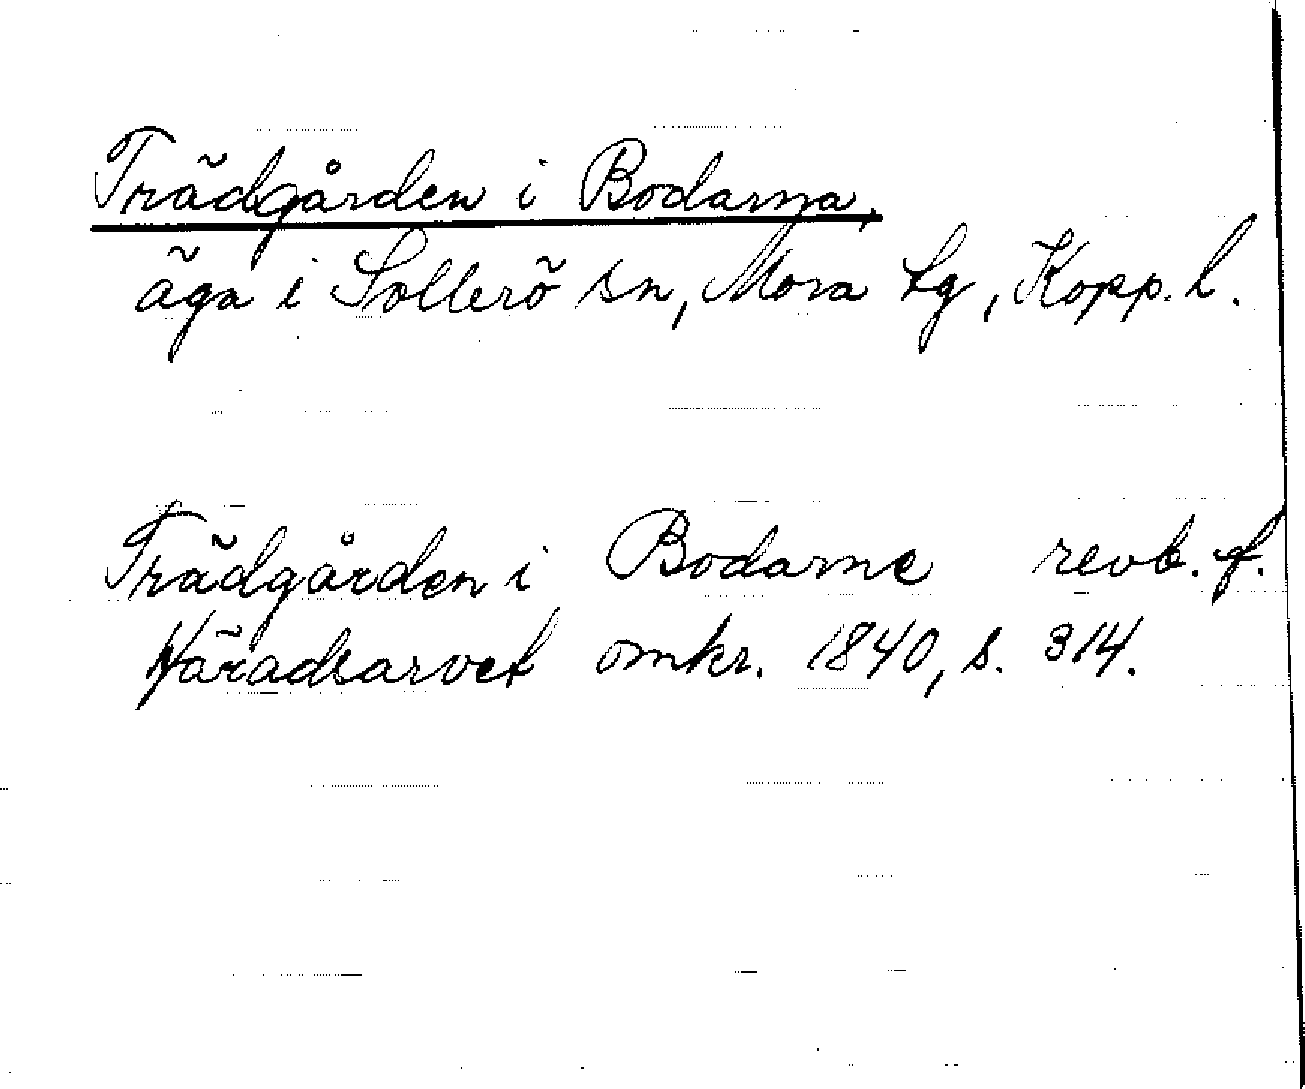 Trädgården i Bodarna,
äga i Sollerö sn, Mora tg, Kopp. l.
Trädgården i Bodarne revb. f.
Häradsarvet omkr. 1840, s. 314.